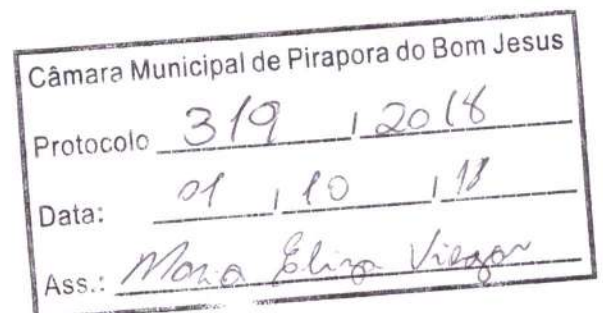 Câmara Municipal de Pirapora do Bom Jesus
Protocolo 319 / 2018
Data: 01 / 10 / 18
Ass.: Maria Eliza Viegas